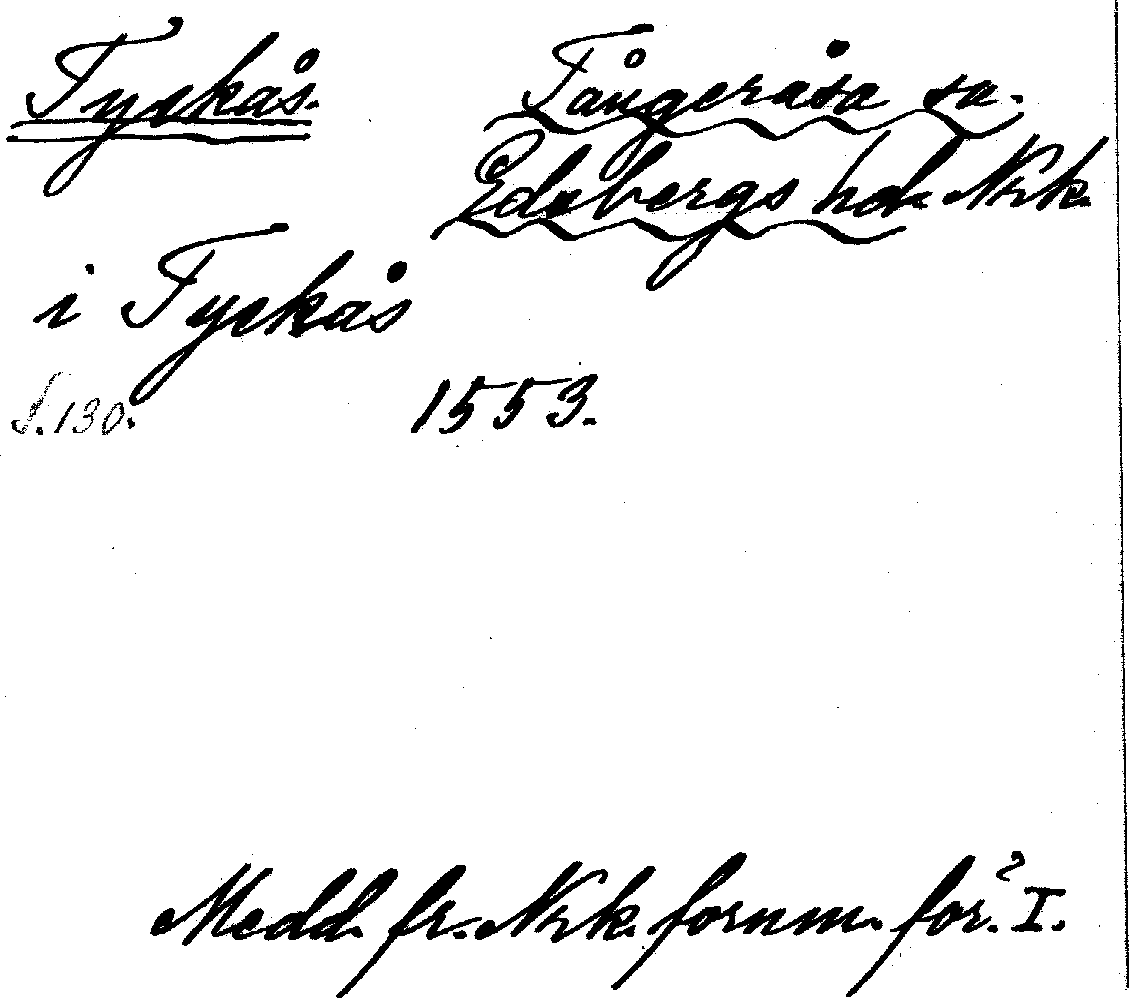 Tyskås. Tångeråsa sn.
Edsbergs hd. Nrk.
i Tyskås
S. 130. 1553.
Medd. fr. Nrk. fornm. för. I.